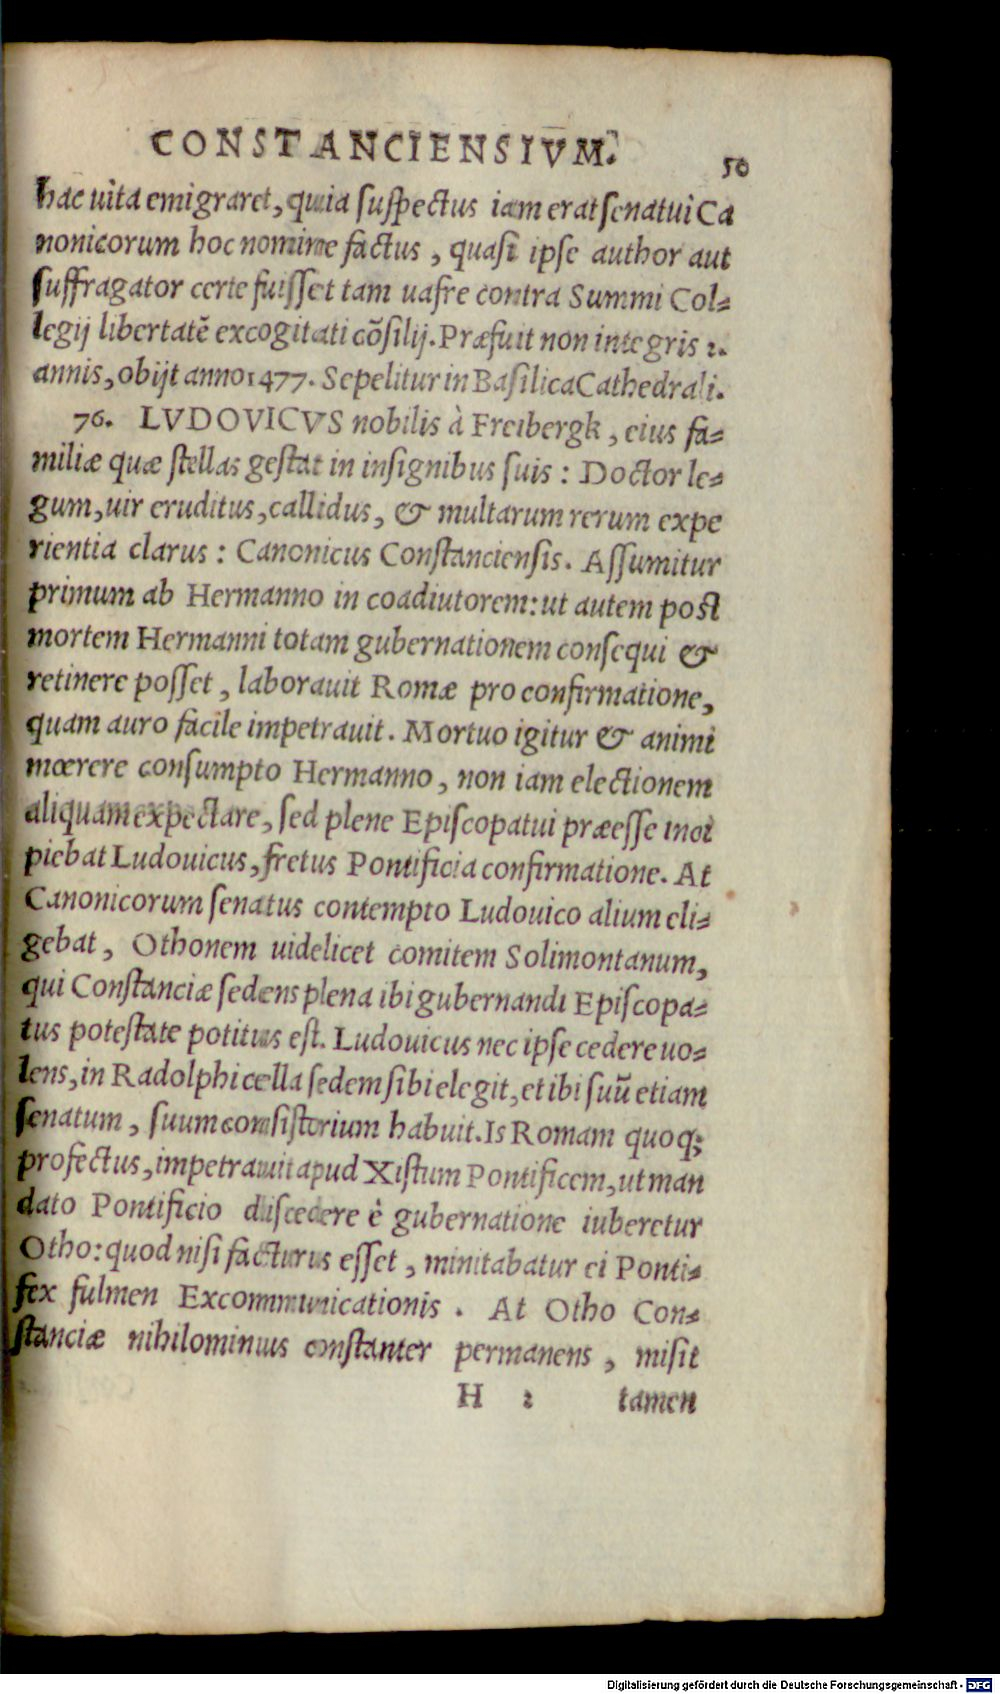 CONSTANCIENSIVM.
50
hac uita emigraret, quia suspectus iam erat senatui Ca
nonicorum hoc nomine factus, quasi ipse author aut
suffragator certe fuisset tam uafre contra Summi Col-
legij libertatē excogitati cōsilij. Præfuit non integris 2.
annis, obijt anno 1477. Sepelitur in Basilica Cathedrali.
76. LVDOVICVS nobilis à Freibergk, eius fa-
miliæ quæ stellas gestat in insignibus suis: Doctor le-
gum, uir eruditus, callidus, & multarum rerum expe
rientia clarus: Canonicus Constanciensis. Assumitur
primum ab Hermanno in coadiutorem: ut autem post
mortem Hermanni totam gubernationem consequi &
retinere posset, laborauit Romæ pro confirmatione,
quam auro facile impetrauit. Mortuo igitur & animi
mœrere consumpto Hermanno, non iam electionem
aliquam expectare, sed plene Episcopatui præesse inci
piebat Ludouicus, fretus Pontificia confirmatione. At
Canonicorum senatus contempto Ludouico alium eli-
gebat, Othonem uidelicet comitem Solimontanum,
qui Constanciæ sedens plena ibi gubernandi Episcopa-
tus potestate potitus est. Ludouicus nec ipse cedere uo-
lens, in Radolphi cella sedem sibi elegit, et ibi suū etiam
senatum, suum consistorium habuit. Is Romam quoq;
profectus, impetrauit apud Xistum Pontificem, ut man
dato Pontificio discedere è gubernatione iuberetur
Otho: quod nisi facturus esset, minitabatur ei Ponti-
fex fulmen Excommunicationis. At Otho Con-
stanciæ nihilominus constanter permanens, misit
H 2 tamen
Digitalisierung gefördert durch die Deutsche Forschungsgemeinschaft - DFG